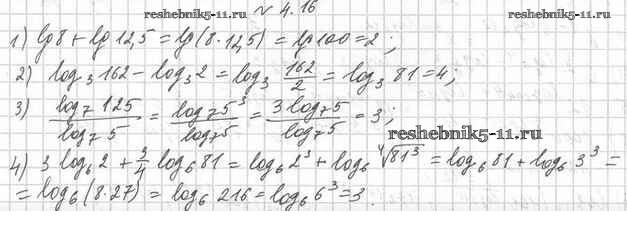 № 4.16
reshebnik5-11.ru
1) lg 8 + lg 12,5 = lg (8·12,5) = lg 100 = 2 ;
2) log₃ 162 − log₃ 2 = log₃ 162/2 = log₃ 81 = 4;
3) log₇ 125 / log₇ 5 = log₇ 5³ / log₇ 5 = 3 log₇ 5 / log₇ 5 = 3 ;
reshebnik5-11.ru
4) 3 log₆ 2 + 3/4 log₆ 81 = log₆ 2³ + log₆ ⁴√81³ = log₆ 81 + log₆ 3³ =
= log₆ (8·27) = log₆ 216 = log₆ 6³ = 3 .